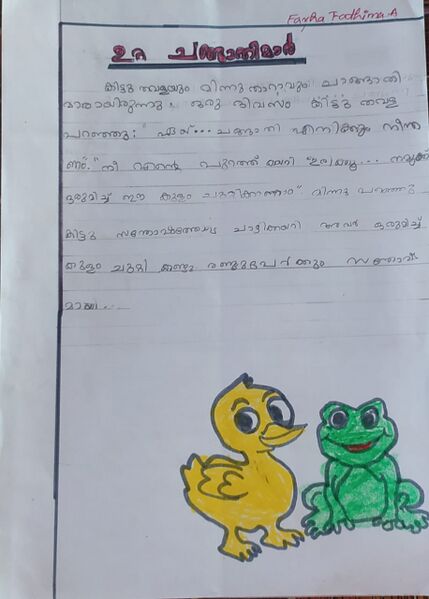 Farha Fathima.A
ഉറ്റ ചങ്ങാതിമാർ
കിട്ടു തവളയും മിന്നു താറാവും ചങ്ങാതി
മാരായിരുന്നു. ഒരു ദിവസം കിട്ടു തവള
പറഞ്ഞു: "ഏയ്... ചങ്ങാതി എനിക്കും നീന്ത
ണം." നീ എന്റെ പുറത്ത് കയറി ഇരിക്കൂ... നമുക്ക്
ഒരുമിച്ച് ഈ കുളം ചുറ്റിക്കാണാം". മിന്നു പറഞ്ഞു
കിട്ടു സന്തോഷത്തോടെ ചാടിക്കയറി അവർ ഒരുമിച്ച്
കുളം ചുറ്റി കണ്ടു രണ്ടുപേർക്കും സന്തോഷ
മായി...